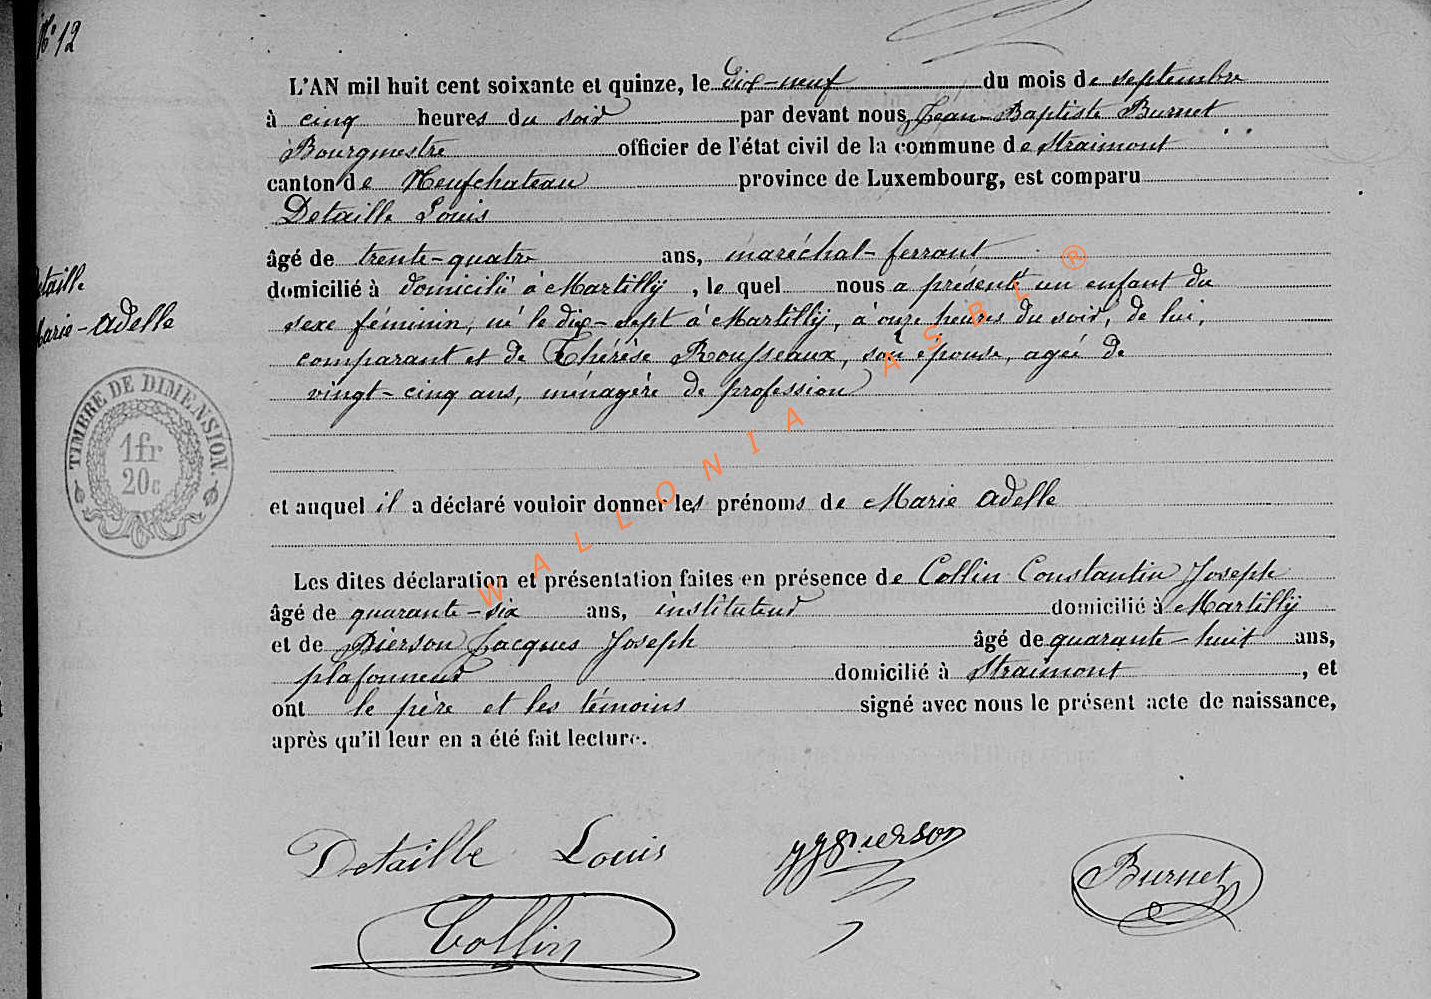 N° 12
L'AN mil huit cent soixante et quinze, le dix-neuf du mois de septembre
à cinq heures du soir par devant nous, Jean-Baptiste Burnet
Bourgmestre officier de l'état civil de la commune de Straimont
canton de Neufchateau province de Luxembourg, est comparu
Detaille Louis
âgé de trente-quatre ans, maréchal-ferrant
domicilié à domicilié à Martilly, le quel nous a présenté un enfant du
sexe féminin, né le dix-sept à Martilly, à onze heures du soir, de lui,
comparant et de Thérèse Rousseaux, son épouse, agée de
vingt-cinq ans, ménagère de profession
et auquel il a déclaré vouloir donner les prénoms de Marie Adelle
Les dites déclaration et présentation faites en présence de Collin Constantin Joseph
âgé de quarante-six ans, instituteur domicilié à Martilly
et de Pierson Jacques Joseph âgé de quarante-huit ans,
plafonneur domicilié à Straimont, et
ont le père et les témoins signé avec nous le présent acte de naissance,
après qu'il leur en a été fait lecture.
Detaille Louis
Pierson
Burnet
Collin
Detaille
Marie-Adelle
TIMBRE DE DIMENSION.
1fr
20c
WALLONIA ASBL ®